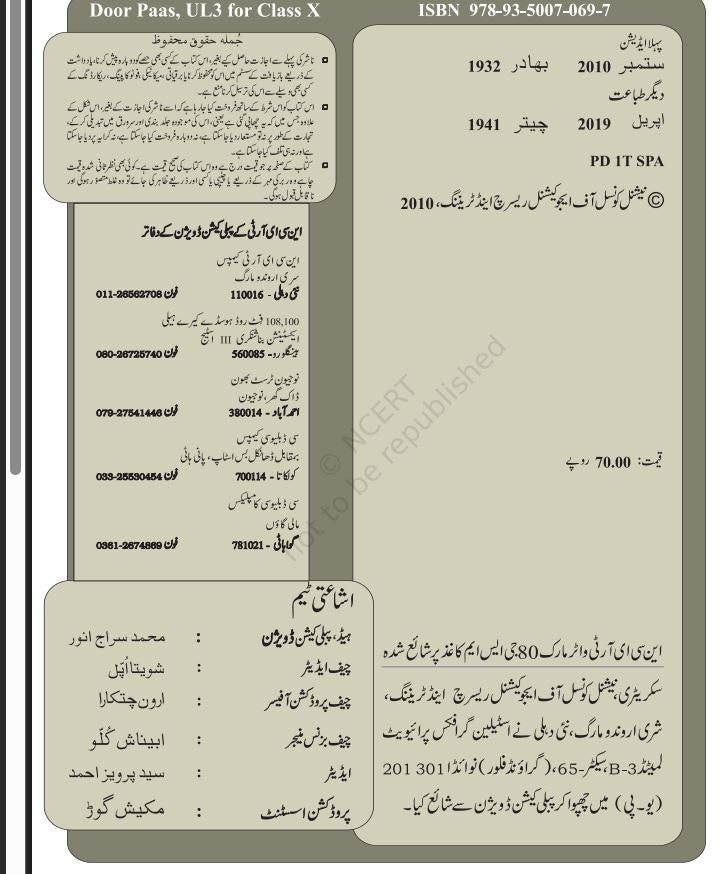 Door Paas, UL3 for Class X
ISBN 978-93-5007-069-7
پہلا ایڈیشن
ستمبر 2010 بھادر 1932
دیگر طباعت
اپریل 2019 چیتر 1941
PD 1T SPA
© نیشنل کونسل آف ایجوکیشنل ریسرچ اینڈ ٹریننگ، 2010
قیمت: 70.00 روپے
این سی ای آر ٹی واٹر مارک 80 جی ایس ایم کاغذ پر شائع شدہ
سکریٹری، نیشنل کونسل آف ایجوکیشنل ریسرچ اینڈ ٹریننگ،
شری اروندو مارگ، نئی دہلی نے اسٹیلین گرافکس پرائیویٹ
لمیٹڈ B-3، سیکٹر-65، (گراؤنڈ فلور) نوائڈا 301 201
(یو۔ پی) میں چھپوا کر پبلی کیشن ڈویژن سے شائع کیا۔
جُملہ حقوق محفوظ
ناشر کی پہلے سے اجازت حاصل کیے بغیر، اس کتاب کے کسی بھی حصے کو دوبارہ پیش کرنا، یادداشت
کے ذریعے بازیافت کے سسٹم میں اس کو محفوظ کرنا یا برقیاتی، میکانیکی، فوٹو کاپینگ، ریکارڈنگ کے
کسی بھی وسیلے سے اس کی ترسیل کرنا منع ہے۔
اس کتاب کو اس شرط کے ساتھ فروخت کیا جا رہا ہے کہ اسے ناشر کی اجازت کے بغیر، اس شکل کے
علاوہ جس میں کہ یہ چھاپی گئی ہے یعنی، اس کی موجودہ جلد بندی اور سرورق میں تبدیلی کر کے،
تجارت کے طور پر نہ تو مستعار دیا جا سکتا ہے، نہ دوبارہ فروخت کیا جا سکتا ہے، نہ کرایہ پر دیا جا سکتا
ہے اور نہ ہی تلف کیا جا سکتا ہے۔
کتاب کے صفحہ پر جو قیمت درج ہے وہ اس کتاب کی صحیح قیمت ہے۔ کوئی بھی نظر ثانی شدہ قیمت
چاہے وہ ربر کی مہر کے ذریعے یا چیپی یا کسی اور ذریعے ظاہر کی جائے تو وہ غلط متصوّر ہوگی اور
ناقابل قبول ہوگی۔
این سی ای آر ٹی کے پبلی کیشن ڈویژن کے دفاتر
این سی ای آر ٹی کیمپس
سری اروندو مارگ
نئی دہلی - 110016 فون 011-26562708
108,100 فٹ روڈ ہوسڈے کیرے ہیلی
ایکسٹینشن بناشنکری III اسٹیج
بینگلورو- 560085 فون 080-26725740
نوجیون ٹرسٹ بھون
ڈاک گھر، نوجیون
احمد آباد - 380014 فون 079-27541446
سی ڈبلیوسی کیمپس
بمقابل ڈھانکل بس اسٹاپ، پانی ہاٹی
کولکاتا - 700114 فون 033-25530454
سی ڈبلیوسی کامپلیکس
مالی گاؤں
گواہاٹی - 781021 فون 0361-2674869
اشاعتی ٹیم
ہیڈ، پبلی کیشن ڈویژن : محمد سراج انور
چیف ایڈیٹر : شویتا اُپّل
چیف پروڈکشن آفیسر : ارون چتکارا
چیف بزنس منیجر : ابیناش کُلّو
ایڈیٹر : سید پرویز احمد
پروڈکشن اسسٹنٹ : مکیش گوڑ
© NCERT
not to be republished